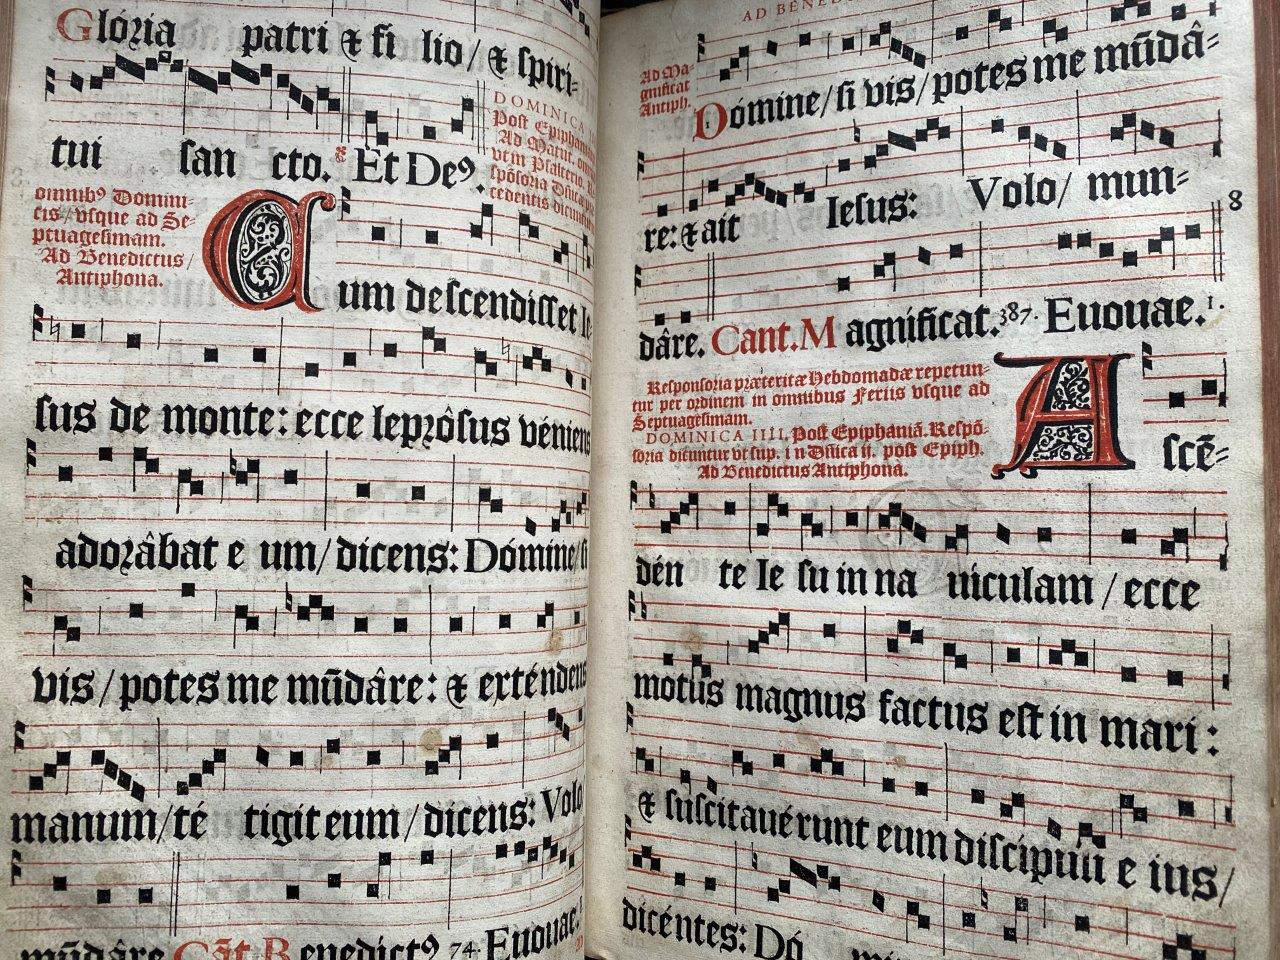 Glória patri & fi lio/ & spiri-
tui san cto. Et De⁹.
DOMINICA
Post Epiphan
Ad Matut.
vtin Psalterio.
omnib⁹ Domini-
cis/vsque ad Se-
ptuagesimam.
Ad Benedictus/
Antiphona.
Cum descendisset Ie-
sus de monte: ecce leprôsus véniens
adorâbat e um/dicens: Dómine/si
vis/potes me mūdâre: & exténdens
manum/té tigit eum/dicens: Volo
mūdâre Cāt. Benedict⁹ 74. Euouae.
AD BENED
Ad Ma-
gnificat
Antiph.
Dómine/si vis/potes me mūdâ-
re: & ait Iesus: Volo/ mun-
8
dâre. Cant. Magnificat. 387. Euouae. 1.
Responsoria præteritæ Hebdomadæ repetun-
tur per ordinem in omnibus Feriis vsque ad
Septuagesimam.
DOMINICA IIII. Post Epiphaniā. Respō-
soria dicuntur vt sup. in Dñica ii. post Epiph.
Ad Benedictus Antiphona.
Ascē-
dén te Ie su in na uiculam/ecce
motus magnus factus est in mari:
& suscitauérunt eum discipuli e ius/
dicéntes: Dó